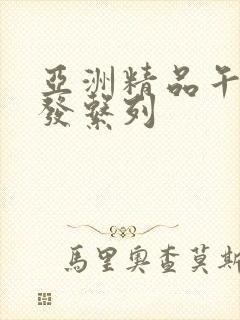 亞洲精品午
發繫列
馬里奧查莫斯